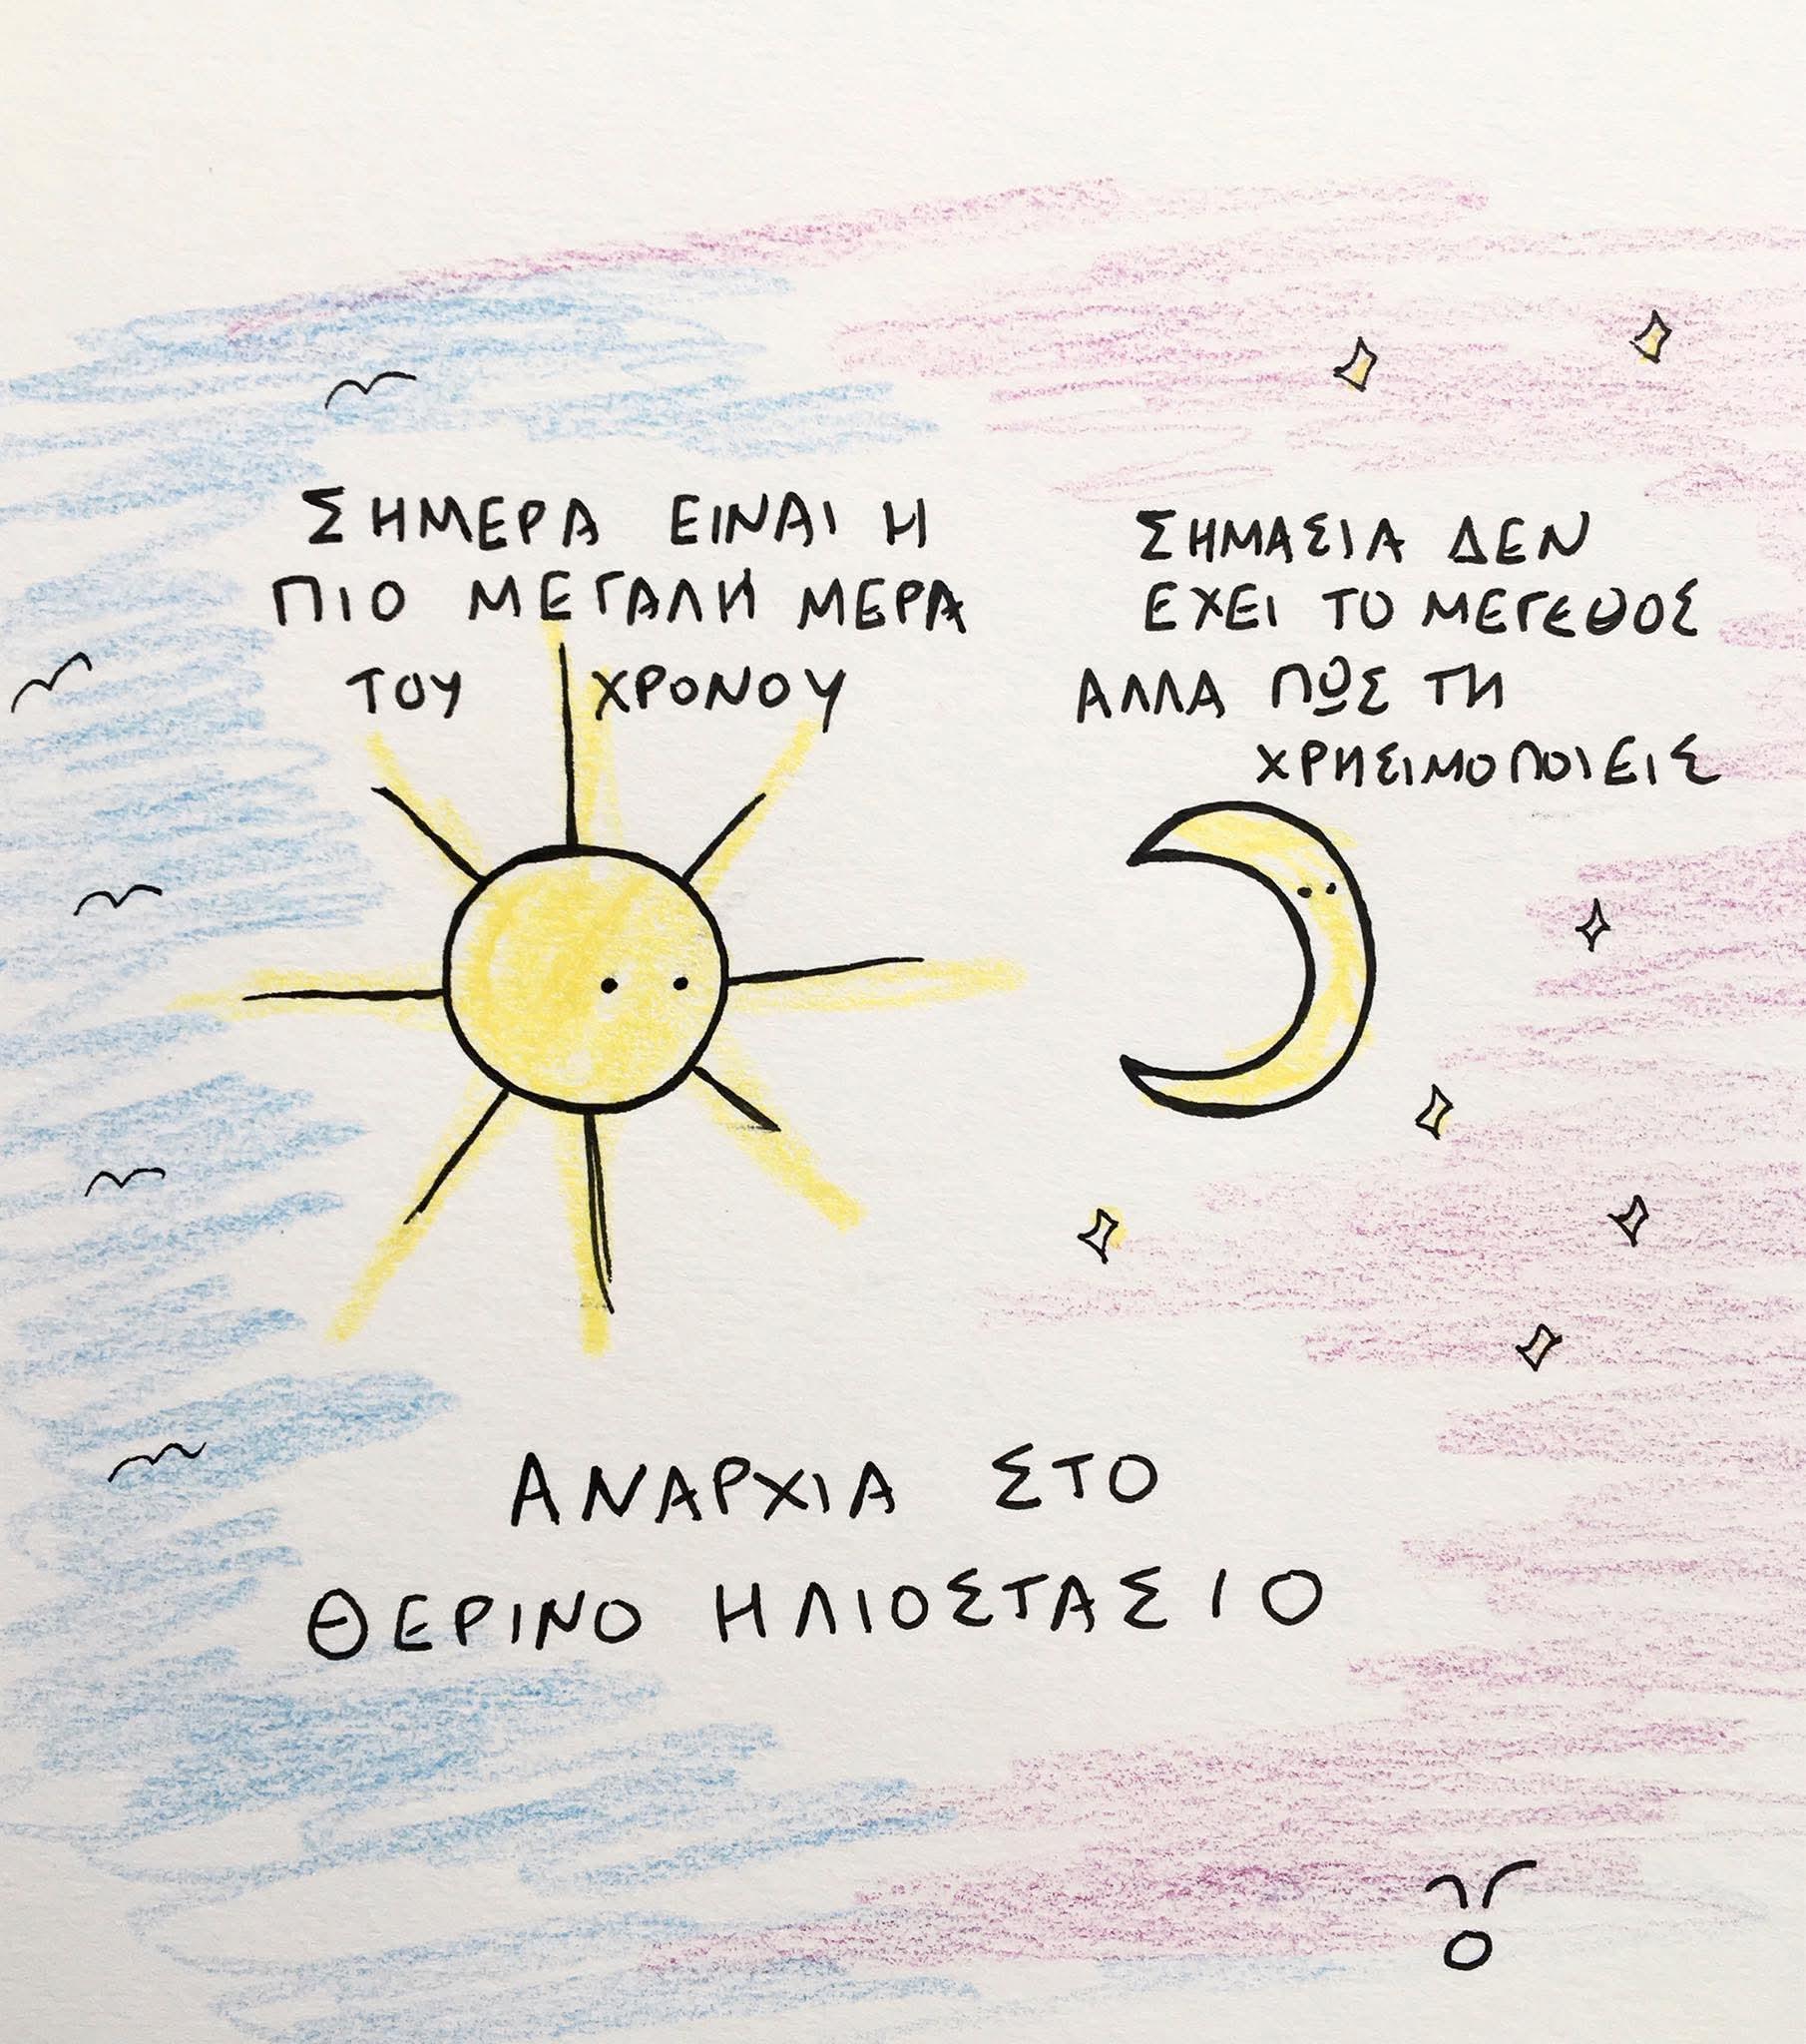 ΣΗΜΕΡΑ ΕΙΝΑΙ Η
ΠΙΟ ΜΕΓΑΛΗ ΜΕΡΑ
ΤΟΥ ΧΡΟΝΟΥ
ΣΗΜΑΣΙΑ ΔΕΝ
ΕΧΕΙ ΤΟ ΜΕΓΕΘΟΣ
ΑΛΛΑ ΠΩΣ ΤΗ
ΧΡΗΣΙΜΟΠΟΙΕΙΣ
ΑΝΑΡΧΙΑ ΣΤΟ
ΘΕΡΙΝΟ ΗΛΙΟΣΤΑΣΙΟ